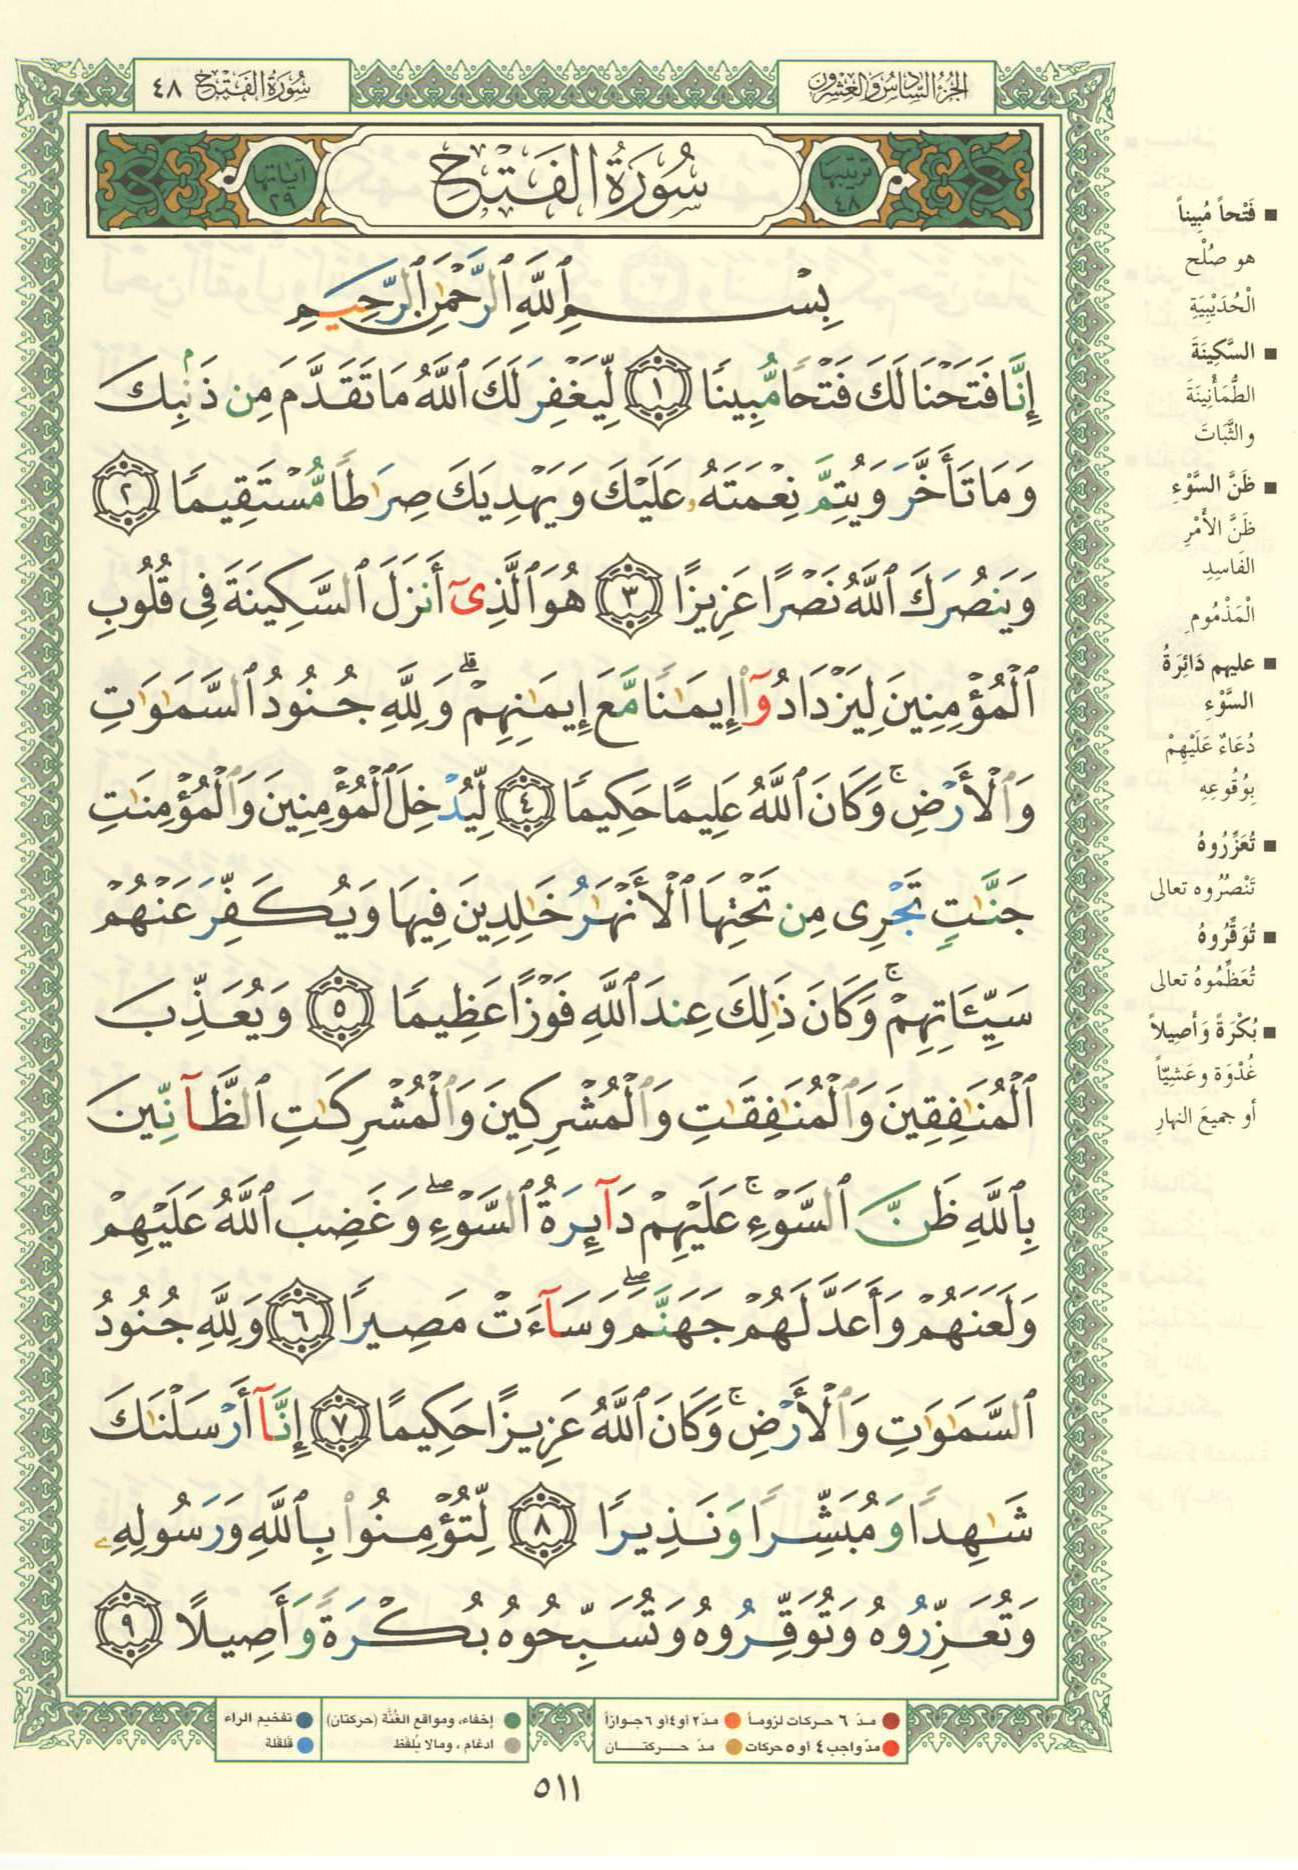 الجزء السادس والعشرون
سورة الفتح ٤٨
ترتيبها ٤٨
سُورَةُ الفَتْح
آياتها ٢٩
بِسْمِ ٱللَّهِ ٱلرَّحْمَٰنِ ٱلرَّحِيمِ
إِنَّا فَتَحْنَا لَكَ فَتْحًا مُّبِينًا ١ لِّيَغْفِرَ لَكَ ٱللَّهُ مَا تَقَدَّمَ مِن ذَنۢبِكَ
وَمَا تَأَخَّرَ وَيُتِمَّ نِعْمَتَهُۥ عَلَيْكَ وَيَهْدِيَكَ صِرَٰطًا مُّسْتَقِيمًا ٢
وَيَنصُرَكَ ٱللَّهُ نَصْرًا عَزِيزًا ٣ هُوَ ٱلَّذِىٓ أَنزَلَ ٱلسَّكِينَةَ فِى قُلُوبِ
ٱلْمُؤْمِنِينَ لِيَزْدَادُوٓا۟ إِيمَٰنًا مَّعَ إِيمَٰنِهِمْ ۗ وَلِلَّهِ جُنُودُ ٱلسَّمَٰوَٰتِ
وَٱلْأَرْضِ ۚ وَكَانَ ٱللَّهُ عَلِيمًا حَكِيمًا ٤ لِّيُدْخِلَ ٱلْمُؤْمِنِينَ وَٱلْمُؤْمِنَٰتِ
جَنَّٰتٍ تَجْرِى مِن تَحْتِهَا ٱلْأَنْهَٰرُ خَٰلِدِينَ فِيهَا وَيُكَفِّرَ عَنْهُمْ
سَيِّـَٔاتِهِمْ ۚ وَكَانَ ذَٰلِكَ عِندَ ٱللَّهِ فَوْزًا عَظِيمًا ٥ وَيُعَذِّبَ
ٱلْمُنَٰفِقِينَ وَٱلْمُنَٰفِقَٰتِ وَٱلْمُشْرِكِينَ وَٱلْمُشْرِكَٰتِ ٱلظَّآنِّينَ
بِٱللَّهِ ظَنَّ ٱلسَّوْءِ ۚ عَلَيْهِمْ دَآئِرَةُ ٱلسَّوْءِ ۖ وَغَضِبَ ٱللَّهُ عَلَيْهِمْ
وَلَعَنَهُمْ وَأَعَدَّ لَهُمْ جَهَنَّمَ ۖ وَسَآءَتْ مَصِيرًا ٦ وَلِلَّهِ جُنُودُ
ٱلسَّمَٰوَٰتِ وَٱلْأَرْضِ ۚ وَكَانَ ٱللَّهُ عَزِيزًا حَكِيمًا ٧ إِنَّآ أَرْسَلْنَٰكَ
شَٰهِدًا وَمُبَشِّرًا وَنَذِيرًا ٨ لِّتُؤْمِنُوا۟ بِٱللَّهِ وَرَسُولِهِۦ
وَتُعَزِّرُوهُ وَتُوَقِّرُوهُ وَتُسَبِّحُوهُ بُكْرَةً وَأَصِيلًا ٩
■ فَتْحاً مُبِيناً
هو صُلْح
الْحُدَيْبِيَةِ
■ السَّكِينَةَ
الطُّمَأْنِينَةَ
والثَّبَاتَ
■ ظَنَّ السَّوْءِ
ظَنَّ الأَمْرِ
الفَاسِدِ
الْمَذْمُومِ
■ عليهم دَائِرَةُ
السَّوْءِ
دُعَاءٌ عَلَيْهِمْ
بِوُقُوعِهِ
■ تُعَزِّرُوهُ
تَنْصُرُوه تعالى
■ تُوَقِّرُوهُ
تُعَظِّمُوهُ تعالى
■ بُكْرَةً وَأَصِيلاً
غُدْوَة وعَشِيّاً
أو جميعَ النهارِ
مدّ ٦ حركات لزوماً مدّ ٢ أو ٤ أو ٦ جوازاً
مدّ واجب ٤ أو ٥ حركات مدّ حركتان
إخفاء، ومواقع الغُنَّة (حركتان) تفخيم الراء
ادغام ، ومالا يُلفَظ قلقلة
٥١١